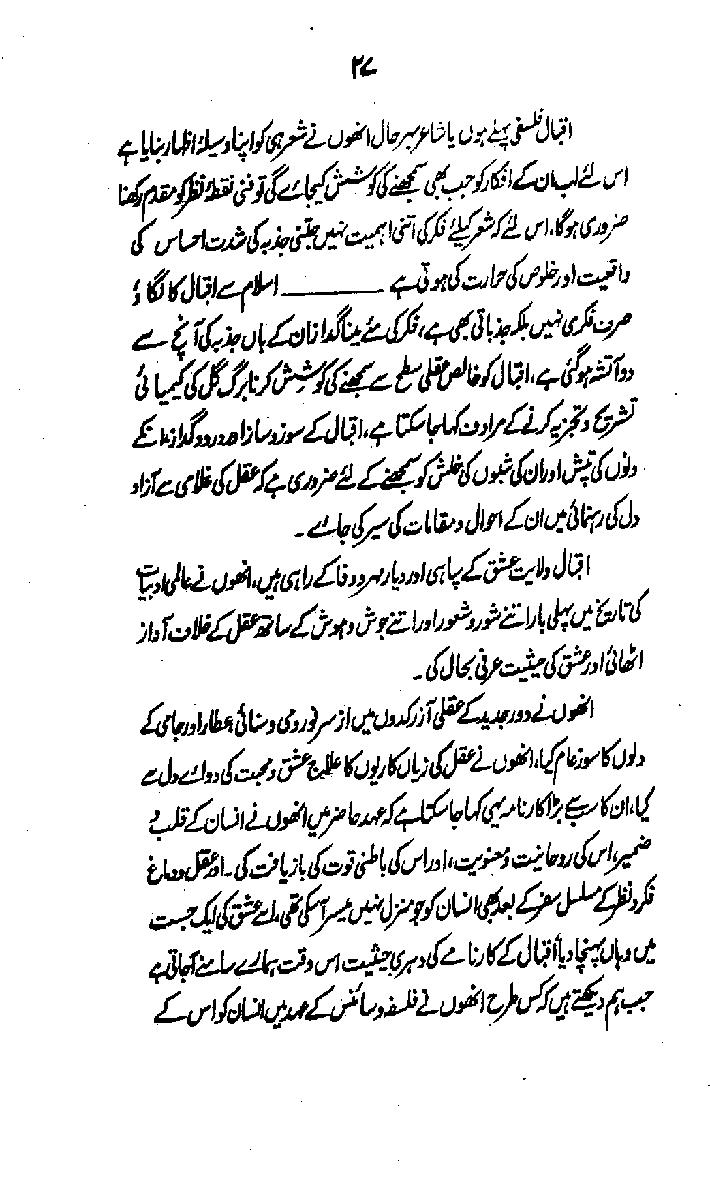 ۲۷
اقبال فلسفی پہلے ہوں یا شاعر بہر حال انھوں نے شعر ہی کو اپنا وسیلۂ اظہار بنایا ہے
اس لئے اب ان کے افکار کو جب بھی سمجھنے کی کوشش کیجائے گی تو فنی نقطۂ نظر کو مقدم رکھنا
ضروری ہوگا، اس لئے کہ شعر کیلئے فکر کی اتنی اہمیت نہیں جتنی جذبہ کی شدت احساس کی
واقعیت اور خلوص کی حرارت کی ہوتی ہے ــــــــــــ اسلام سے اقبال کا لگاؤ
صرف فکری نہیں بلکہ جذباتی بھی ہے، فکر کی مئے مینا گداز ان کے ہاں جذبہ کی آنچ سے
دو آتشہ ہوگئی ہے، اقبال کو خالص عقلی سطح سے سمجھنے کی کوشش کرنا برگ گل کی کیمیائی
تشریح و تجزیہ کرنے کے مرادف کہا جاسکتا ہے، اقبال کے سوز و ساز اور درد و گداز انکے
دنوں کی تپش اور ان کی شبوں کی خلش کو سمجھنے کے لئے ضروری ہے کہ عقل کی غلامی سے آزاد
دل کی رہنمائی میں ان کے احوال و مقامات کی سیر کی جائے۔
اقبال ولایت عشق کے سپاہی اور دیار مہر و وفا کے راہی ہیں، انھوں نے عالمی ادبیات
کی تاریخ میں پہلی بار اتنے شور و شعور اور اتنے جوش و ہوش کے ساتھ عقل کے خلاف آواز
اٹھائی اور عشق کی حیثیت عرفی بحال کی۔
انھوں نے دور جدید کے عقلی آزر کدوں میں از سر نو رومی و سنائی عطار اور جامی کے
دلوں کا سوز عام کیا، انھوں نے عقل کی زیاں کاریوں کا علاج عشق و محبت کی دوائے دل سے
کیا، ان کا سب سے بڑا کارنامہ یہی کہا جاسکتا ہے کہ عہد حاضر میں انھوں نے انسان کے قلب و
ضمیر، اس کی روحانیت و معنویت، اور اس کی باطنی قوت کی بازیافت کی۔ اور عقل و دماغ
فکر و نظر کے مسلسل سفر کے بعد بھی انسان کو جو منزل نہیں میسر آسکی تھی، اسے عشق کی ایک جست
میں وہاں پہنچا دیا اقبال کے کارنامے کی دہری حیثیت اس وقت ہمارے سامنے آجاتی ہے
جب ہم دیکھتے ہیں کہ کس طرح انھوں نے فلسفہ و سائنس کے عہد میں انسان کو اس کے